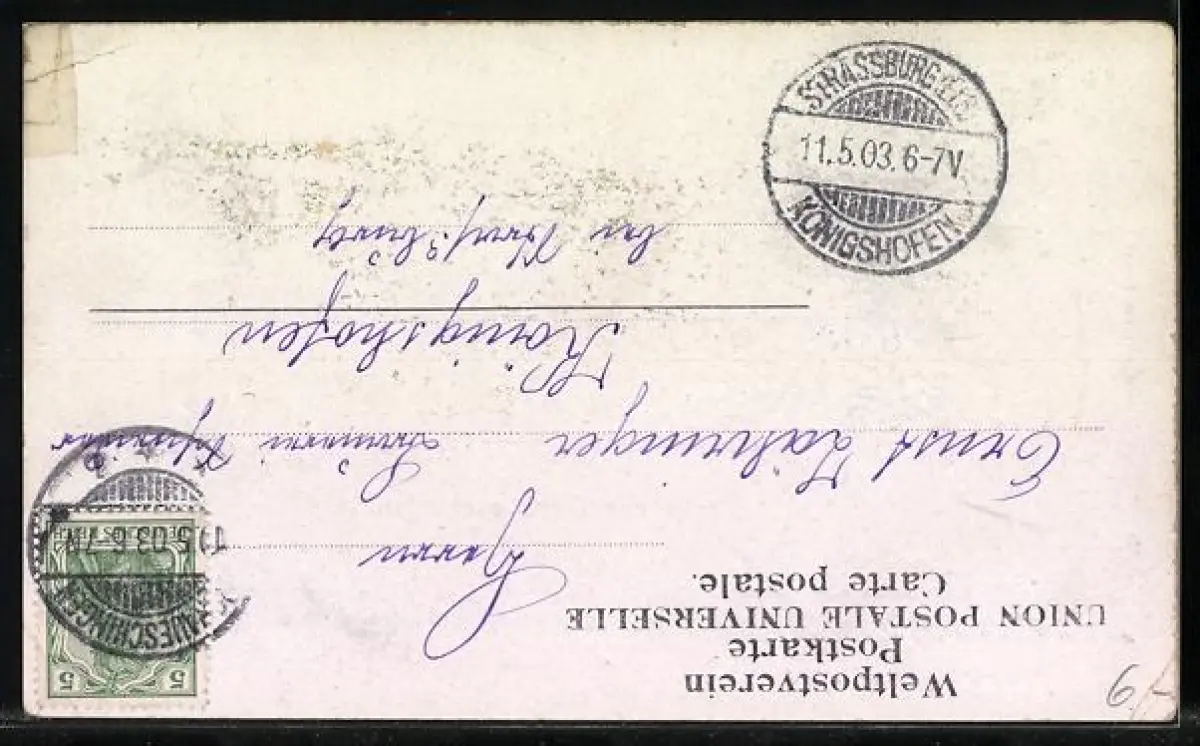 Weltpostverein
Postkarte
UNION POSTALE UNIVERSELLE
Carte postale.
Herrn
Ernst Zähringer
Königshofen
bei Straßburg
STRASSBURG (ELS.
11.5.03.6-7V.
KÖNIGSHOFEN
5 5
DONAUESCHINGEN
5.03.6-7N
6/-